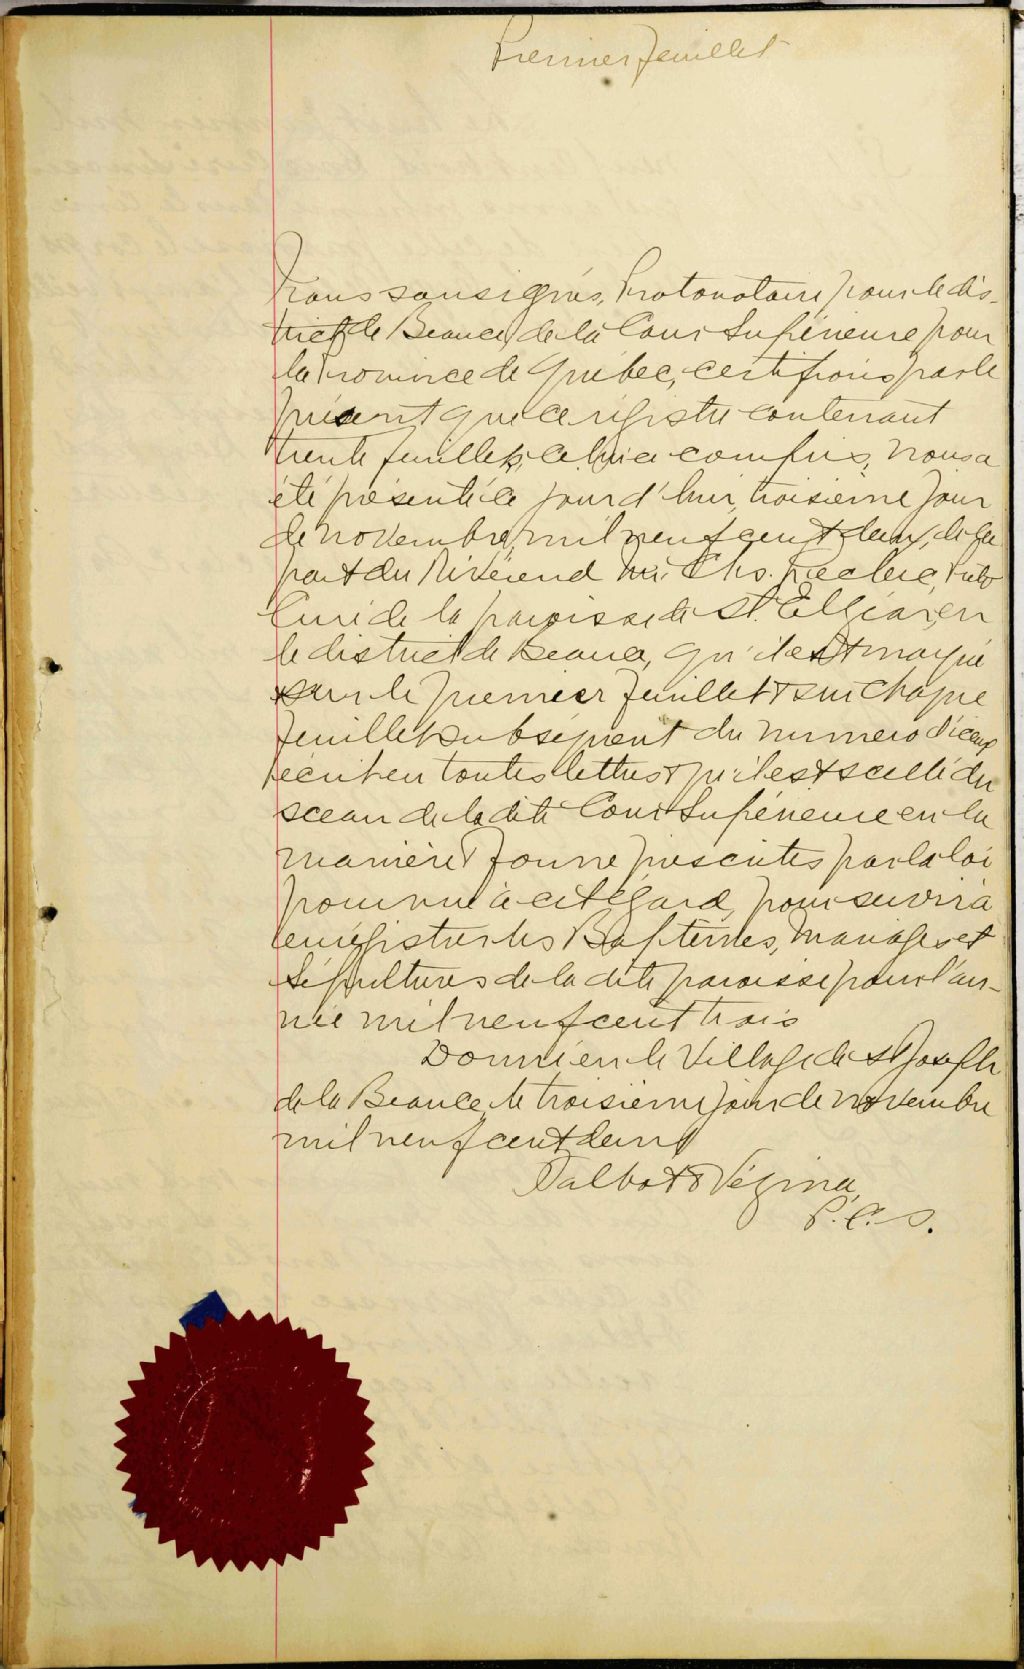 Premier feuillet
Nous soussignés, Protonotaire pour le dis-
trict de Beauce, de la Cour Supérieure pour
la Province de Québec, certifions par le
présent que ce régistre contenant
trente feuillets, celui ci compris, nous a
été présenté ce jourd'hui, troisième jour
de novembre, mil neuf cent deux, de la
part du Révérend Mr. Chs. Leclerc, Ptre
Curé de la paroisse de St. Elzéar, en
le district de Beauce, qu'il est marqué
sur le premier feuillet & sur chaque
feuillet subséquent du numéro d'iceux
écrit en toutes lettres & qu'il est scellé du
sceau de la dite Cour Supérieure en la
manière & forme prescrites par la loi
pourvue à cet égard, pour servir à
enrégistrer les Baptêmes, Mariages et
Sépultures de la dite paroisse pour l'an-
née mil neuf cent trois
Donné en le Village de St Joseph
de la Beauce, le troisième jour de novembre
mil neuf cent deux
Talbot & Vézina,
P. C. S.